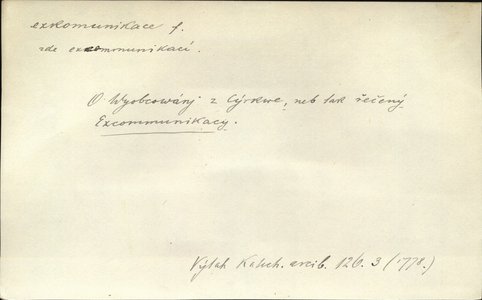 exkomunikace f.
zde excommunikací.
O Wyobcowánj z Cýrkwe, neb tak řečený
Excommunikacy.
Výtah Katech. arcib. 120. 3 (1778.)